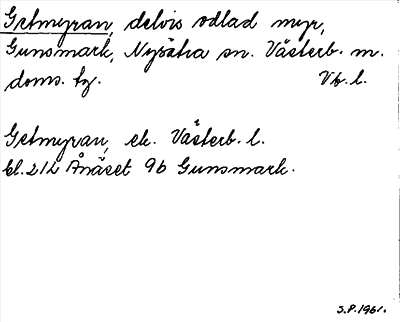 Getmyran, delvis odlad myr,
Gunsmark, Nysätra sn. Västerb. m.
doms. fg. Vb. l.
Getmyran, ek. Västerb. l.
bl. 212 Ånäset 9b Gunsmark.
S.P. 1961.